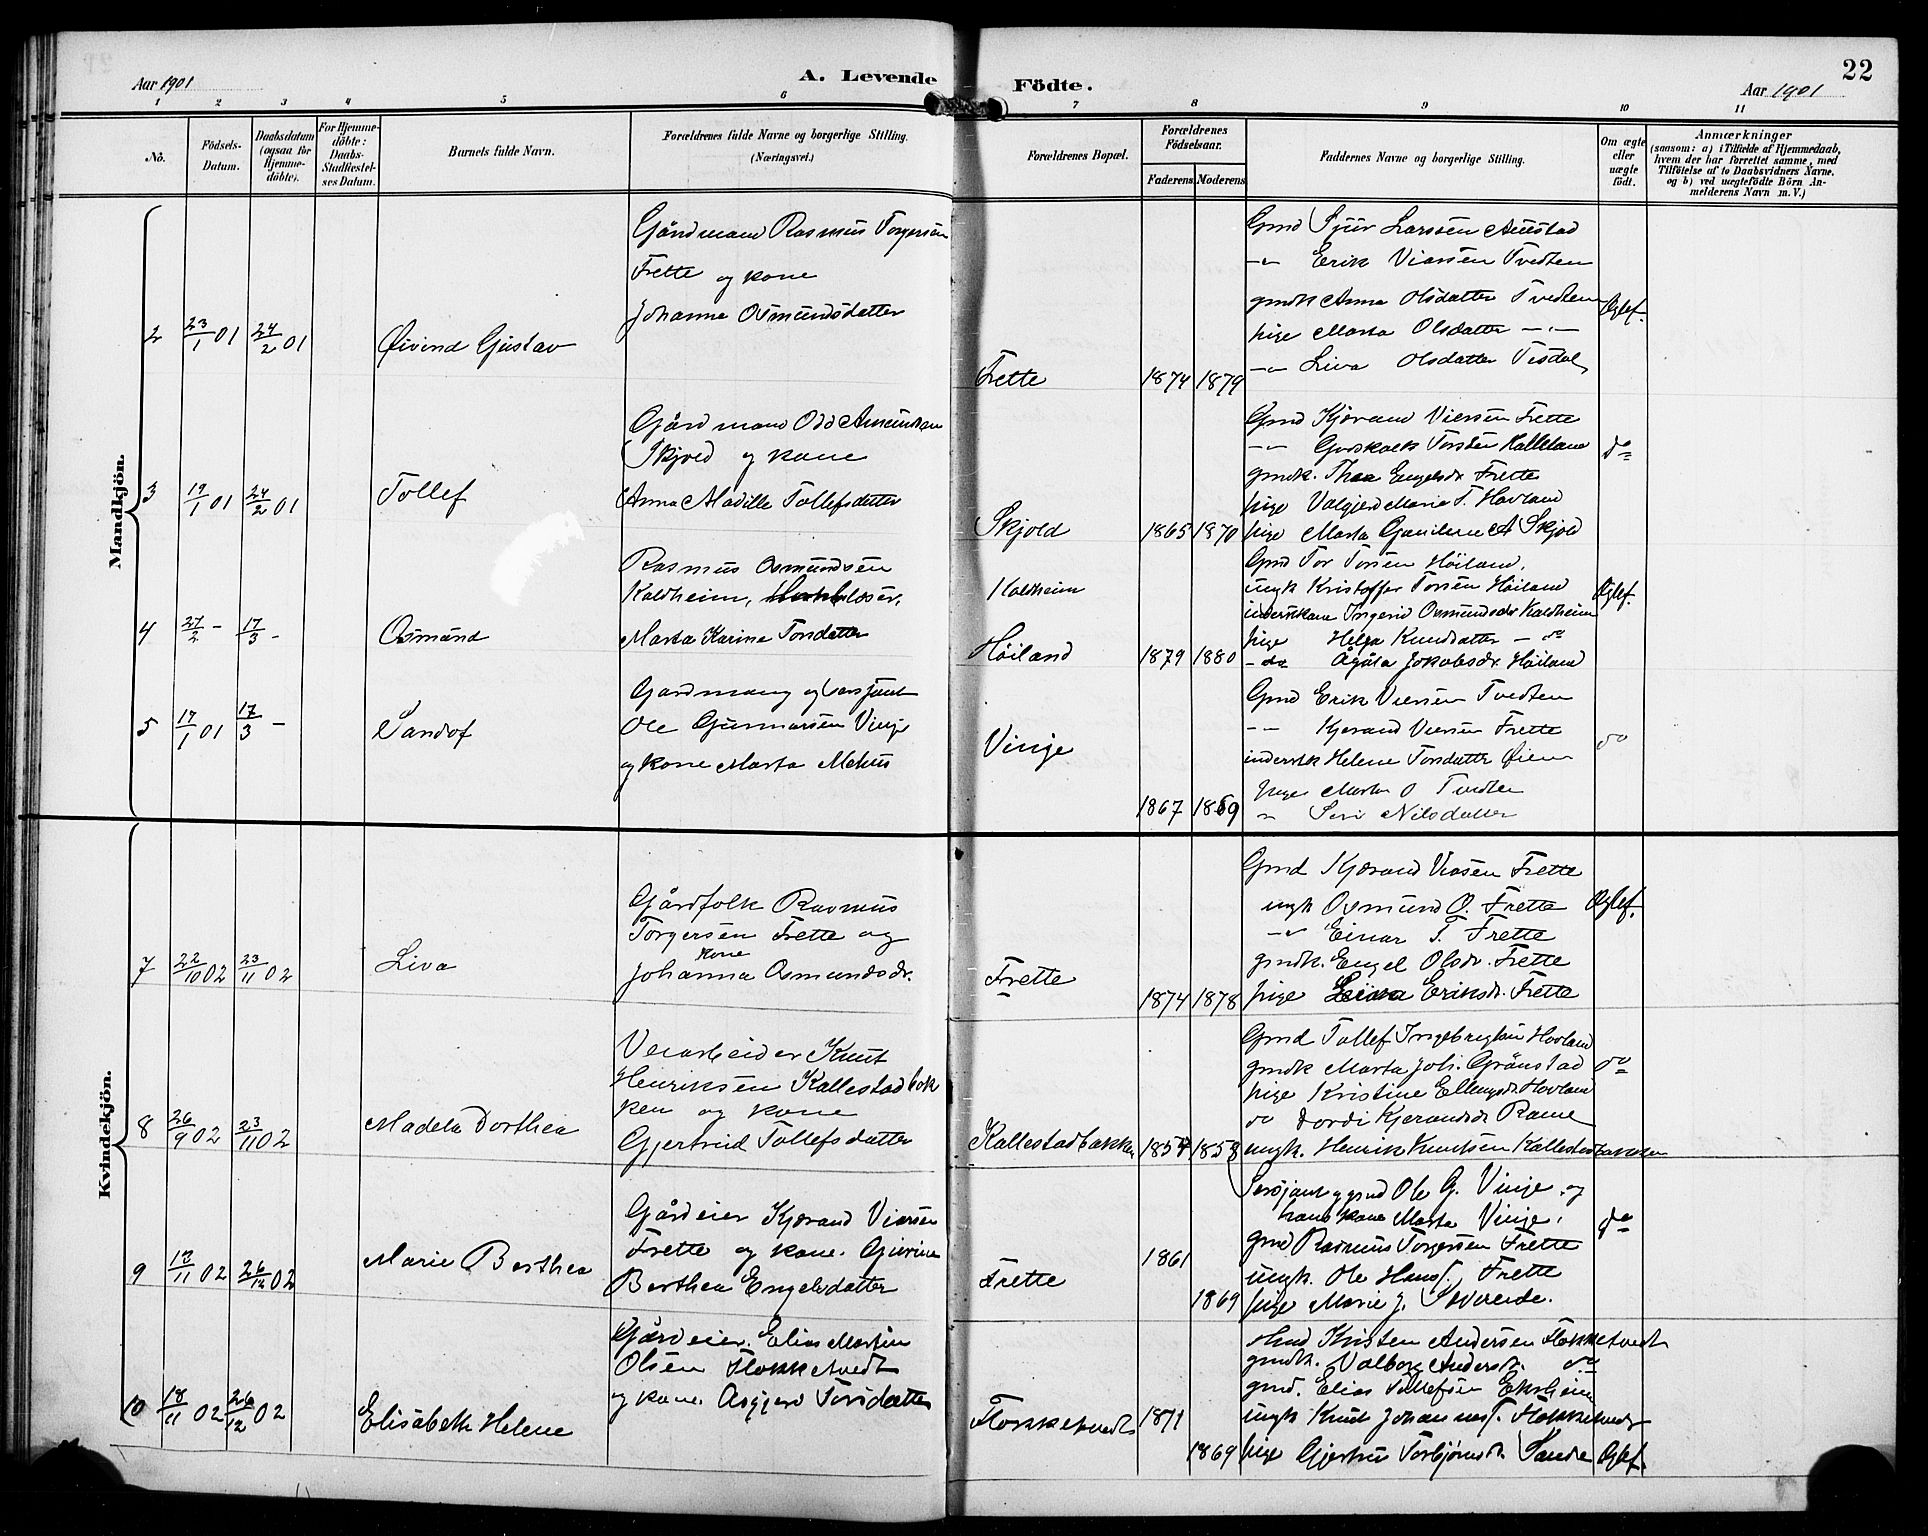 Aar 1901
A. Levende Födte.
Aar 1901
22
1 2 3 4 5 6 7 8 9 10 11
No.
Födsels-
Datum.
Daabsdatum
(ogsaa for
Hjemme-
döbte).
For Hjemme-
döbte:
Daabs-
Stadfæstel-
ses Datum.
Barnets fulde Navn.
Forældrenes fulde Navne og borgerlige Stilling.
(Næringsvei.)
Forældrenes Bopæl.
Forældrenes
Födselsaar.
Faderens
Moderens
Faddernes Navne og borgerlige Stilling.
Om ægte
eller
uægte
født.
Anmærkninger
(saasom: a) i Tilfælde af Hjemmedaab,
hvem der har forrettet samme, med
Tilføielse af to Daabsvidners Navne.
og b) ved uægtefödte Börn An-
melderens Navn m. V.)
Mandkjön.
2 23/1 01 24/2 01 Øivind Gustav
Gårdmand Rasmus Torgersen
Frette og kone
Johanne Osmundsdatter
Frette 1874 1879
Gmd Sjur Larssen Austad
-"- Erik Viersen Tvedten
gmdk Anna Olsdatter Tvedten
pige Marta Olsdatter -"-
-"- Liva Olsdatter Tesdal
Ægtef.
3 19/1 01 24/2 01 Tollef
Gårdmand Odd Amundsen
Skjold og kone
Anna Maville Tollefsdatter
Skjold 1865 1870
Gmd Kjørand Viersen Frette
-"- Godskalk Torsten Halleland
gmdk. Thea Engelsdr Frette
pige Valgjerd Marie T. Havland
pige Marta Gundine A Skjold
do
4 27/2 - 17/3 - Osmund
Rasmus Osmundsen
Kaldheim,
Marta Karine Torsdatter
Kaldheim
Høiland 1879 1880
Gmd Tor Torsen Høiland,
ungk Kristoffer Torsen Høiland
inderstkone Ingerid Osmundsdr Kaldheim
pige Helga Knudsdatter - do
- do Ågåta Jokobsdr. Høiland
Ægtef.
5 17/1 01 17/3 - Sandof
Gardmang og sersjant
Ole Gunnarsen Vinje
og kone Marta Mehus
Vinje
1867 1869
Gmd Erik Viersen Tvedten
-"- Kjerand Viersen Frette
inderstk Helene Torsdatter Øien
pige Marta O Tvedten
" Siri Nilsdatter
do
Kvindekjön.
7 22/10 02 23/11 02 Liva
Gårdfolk Rasmus
Torgersen Frette og
kone
Johanna Osmundsdr.
Frette 1874 1878
Gmd Kjørand Viersen Frette
ungk Osmund O. Frette
-"- Einar T. Frette
gmdk. Engel Olsdr. Frette
pige Eriksdr. Frette
Ægtef.
8 26/9 02 23/11 02 Madela Dorthea
Veiarbeider Knut
Henriksen Kallestadbak
ken og kone
Gjertrud Tollefsdatter
Kallestadbakken 1857 1858
Gmd Tollef Ingebregtsen Hovland
gmdk Marta Joh. Grønstad
pige Kristine Ellingsdr. Hovland
do Dordi Kjerandsdr Rame
ungk. Henrik Knutsen Kallestadbakken
do
9 12/11 02 26/12 02 Marie Berthea
Gårdeier Kjørand Viersen
Frette og kone. Gurine
Berthea Engelsdatter
Frette 1861
1869
Sersjant og gmd Ole G. Vinje og
hans kone Marta Vinje,
gmd Rasmus Torgersen Frette
ungk. Ole Hans f. Frette
pige Marie J. Sverede.
do
10 18/11 02 26/12 02 Elisabeth Helene
Gårdeier. Elias Martin
Olsen Flokketvedt
og kone. Asgjerd Torsdatter
Flokketvedt 1871
1869
Gmd Kristen Andersen Flokketvedt
gmdk. Valborg Andersd. do
gmd. Elias Tollefsen Ekrheim
ungk Knut Johannes f. Flokketvedt
pige Gjertrud Torbjørnsdr. Sande
Ægtef.